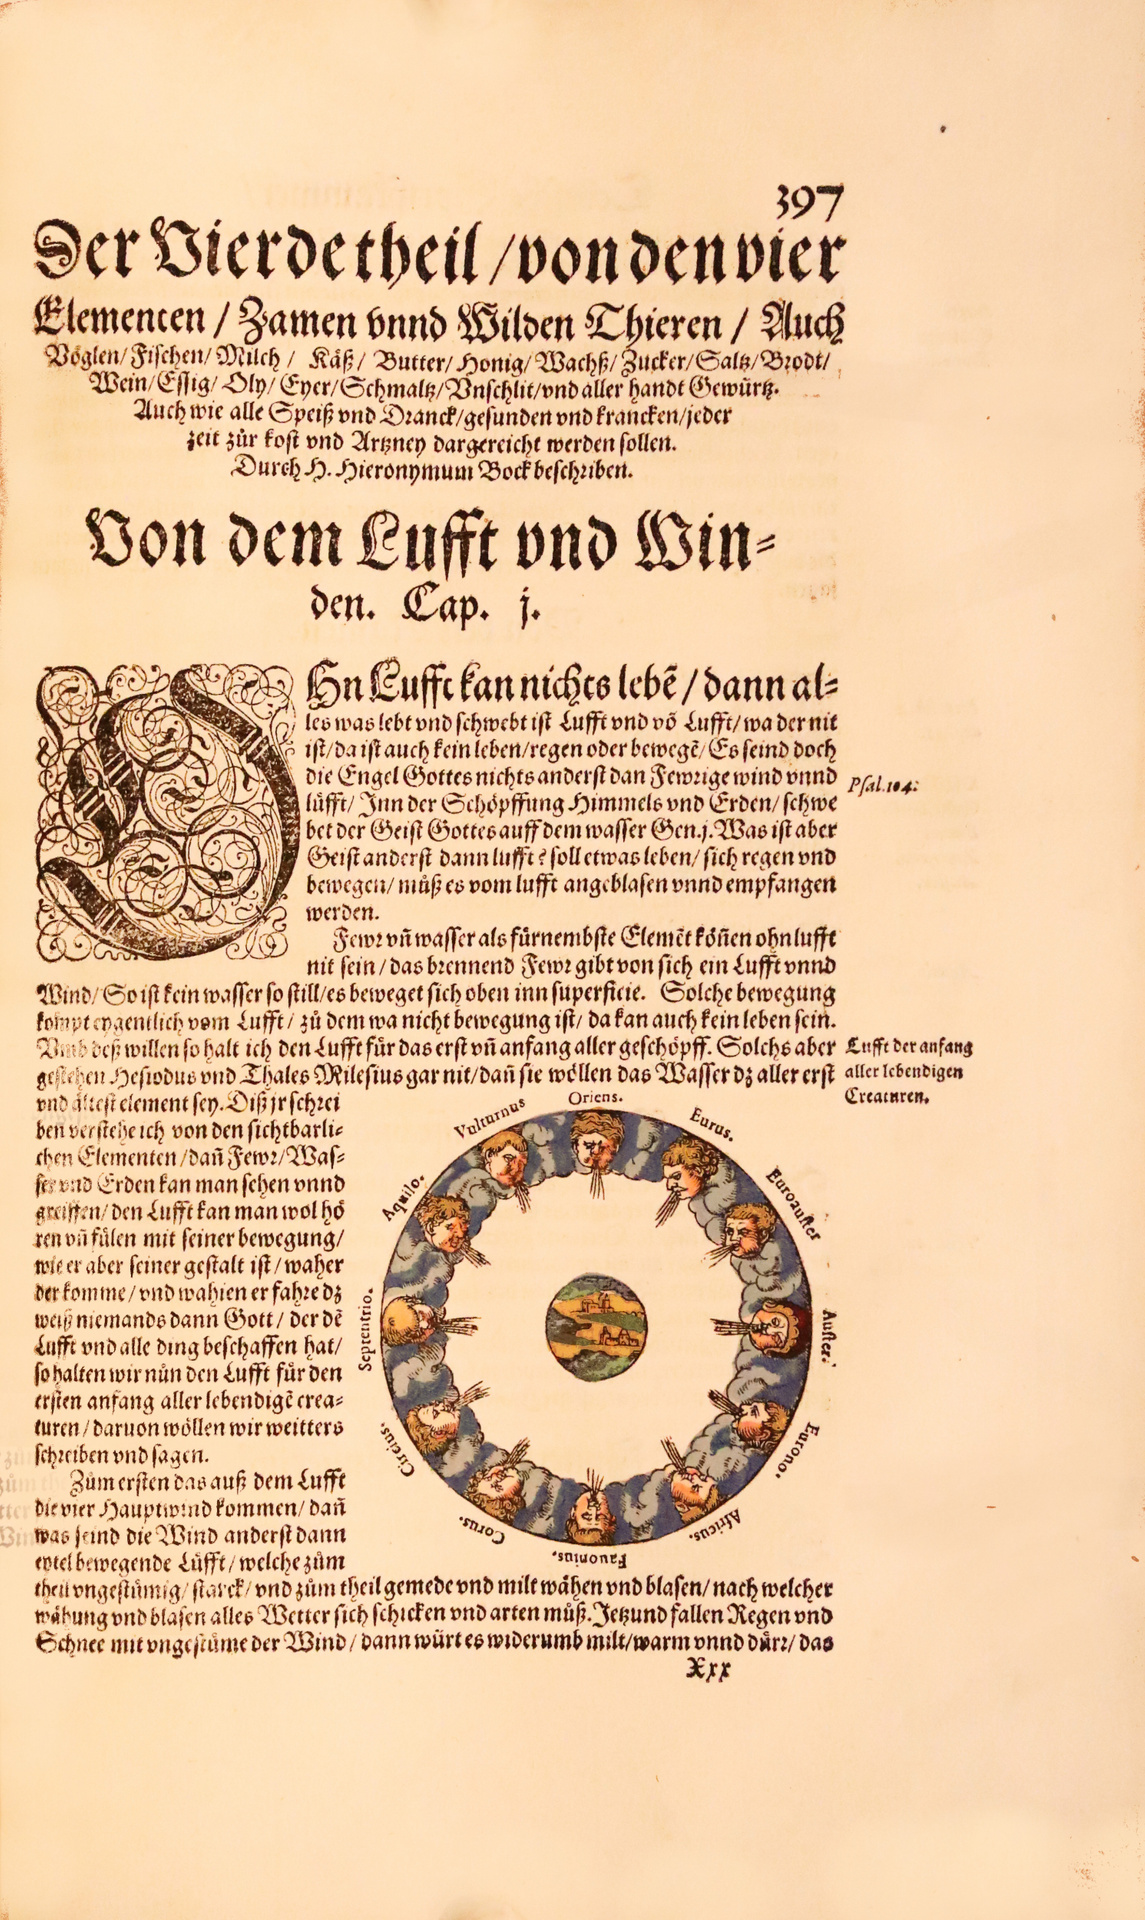 397
Der Vierde theil / von den vier
Elementen / Zamen vnnd Wilden Thieren / Auch
Vöglen / Fischen / Milch / Käß / Butter / Honig / Wachß / Zucker / Saltz / Brodt /
Wein / Essig / Oly / Eyer / Schmaltz / Vnschlit / vnd aller handt Gewürtz.
Auch wie alle Speiß vnd Dranck / gesunden vnd krancken / jeder
zeit zůr kost vnd Artzney dargereicht werden sollen.
Durch H. Hieronymum Bock beschriben.
Von dem Lufft vnd Win⸗
den. Cap. j.
OHn Lufft kan nichts lebẽ / dann al⸗
les was lebt vnd schwebt ist Lufft vnd võ Lufft / wa der nit
ist / da ist auch kein leben / regen oder bewegẽ / Es seind doch
die Engel Gottes nichts anderst dan Fewrige wind vnnd
lüfft / Inn der Schöpffung Himmels vnd Erden / schwe
bet der Geist Gottes auff dem wasser Gen.j. Was ist aber
Geist anderst dann lufft? soll etwas leben / sich regen vnd
bewegen / můß es vom lufft angeblasen vnnd empfangen
werden.
Psal.104.
Fewr vñ wasser als fürnembste Elemẽt köñen ohn lufft
nit sein / das brennend Fewr gibt von sich ein Lufft vnnd
Wind / So ist kein wasser so still / es beweget sich oben inn superficie. Solche bewegung
kompt eygentlich vom Lufft / zů dem wa nicht bewegung ist / da kan auch kein leben sein.
Vmb deß willen so halt ich den Lufft für das erst vñ anfang aller geschöpff. Solchs aber
gestehen Hesiodus vnd Thales Milesius gar nit / dañ sie wöllen das Wasser dz aller erst
Lufft der anfang
aller lebendigen
Creaturen.
vnd ältest element sey. Diß jr schrei
ben verstehe ich von den sichtbarli⸗
chen Elementen / dañ Fewr / Was⸗
ser vnd Erden kan man sehen vnnd
greiffen / den Lufft kan man wol hö
ren vñ fülen mit seiner bewegung /
wie er aber seiner gestalt ist / waher
der komme / vnd wahien er fahre dz
weiß niemands dann Gott / der dẽ
Lufft vnd alle ding beschaffen hat /
so halten wir nůn den Lufft für den
ersten anfang aller lebendigẽ crea⸗
turen / daruon wöllen wir weitters
schreiben vnd sagen.
Zům ersten das auß dem Lufft
die vier Hauptwind kommen / dañ
was seind die Wind anderst dann
eytel bewegende Lüfft / welche zům
Oriens.
Eurus.
Euroauster
Auster.
Eurono.
Africus.
Fauonius.
Corus.
Circius.
Septentrio.
Aquilo.
Vulturnus
theil vngestümig / starck / vnd zům theil gemede vnd milt wähen vnd blasen / nach welcher
wähung vnd blasen alles Wetter sich schicken vnd arten můß. Jetzund fallen Regen vnd
Schnee mit vngestüme der Wind / dann würt es widerumb milt / warm vnnd dürr / das
Xxx